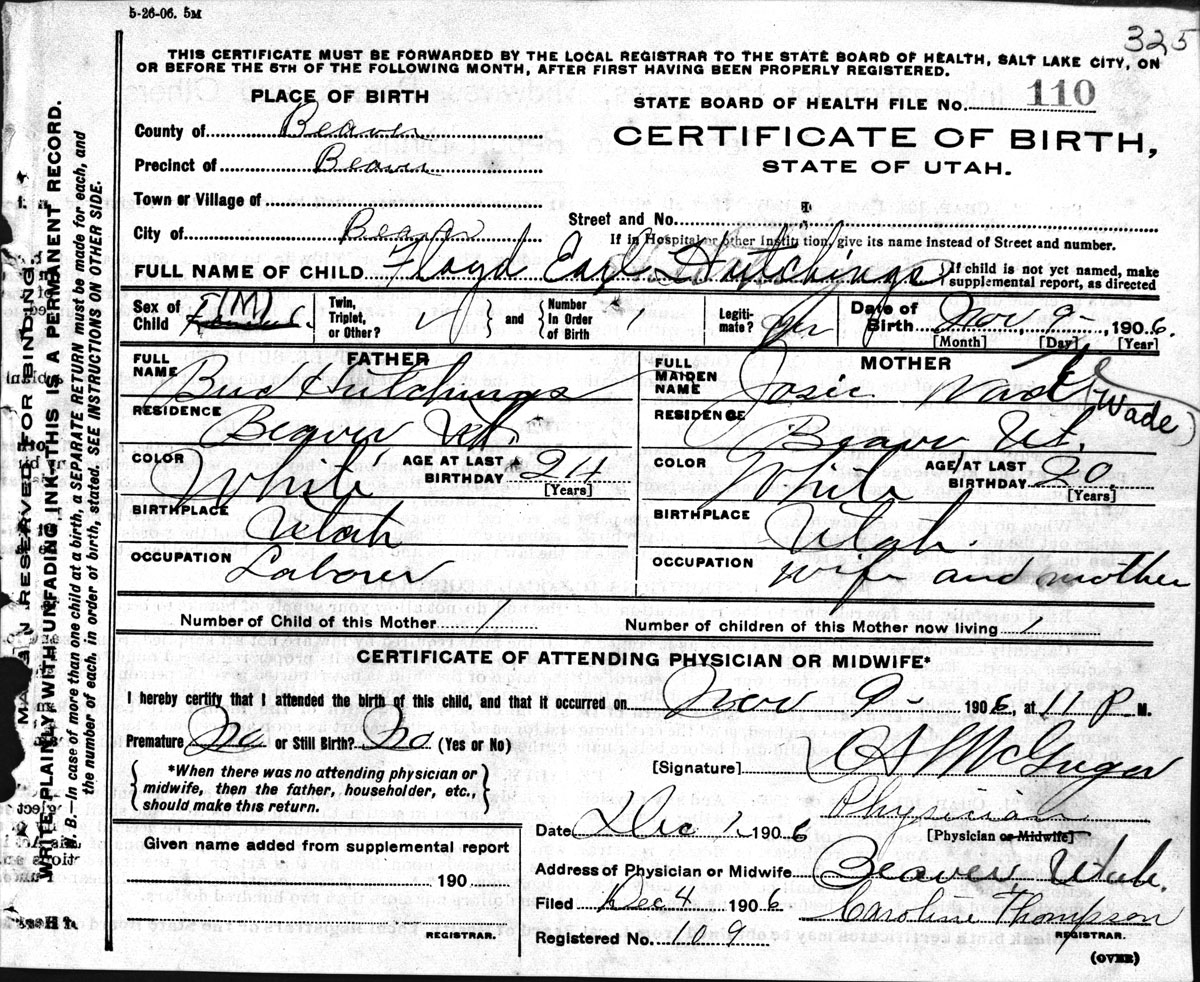 5-26-06. 5M
325
THIS CERTIFICATE MUST BE FORWARDED BY THE LOCAL REGISTRAR TO THE STATE BOARD OF HEALTH, SALT LAKE CITY, ON
OR BEFORE THE 5TH OF THE FOLLOWING MONTH, AFTER FIRST HAVING BEEN PROPERLY REGISTERED.
PLACE OF BIRTH
STATE BOARD OF HEALTH FILE No. 110
County of Beaver
CERTIFICATE OF BIRTH,
Precinct of Beaver
STATE OF UTAH.
Town or Village of
Street and No.
City of Beaver
If in Hospital or other Institution, give its name instead of Street and number.
FULL NAME OF CHILD Floyd Earl Hutchings
If child is not yet named, make
supplemental report, as directed
Sex of Child (M)
Twin, Triplet, or Other?
and
Number In Order of Birth
Legiti-mate? yes
Date of Birth Nov 9 - , 1906.
[Month] [Day] [Year]
FATHER
MOTHER
FULL NAME Bud Hutchings
FULL MAIDEN NAME Josie Wade (Wade)
RESIDENCE Beaver Ut.
RESIDENCE Beaver Ut.
COLOR White AGE AT LAST BIRTHDAY 24 [Years]
COLOR White AGE AT LAST BIRTHDAY 20 [Years]
BIRTHPLACE Utah
BIRTHPLACE Utah.
OCCUPATION Laborer
OCCUPATION wife and mother
Number of Child of this Mother 1
Number of children of this Mother now living 1
CERTIFICATE OF ATTENDING PHYSICIAN OR MIDWIFE*
I hereby certify that I attended the birth of this child, and that it occurred on Nov 9 - 1906, at 11 P. M.
Premature No or Still Birth? No (Yes or No)
[Signature]
*When there was no attending physician or
midwife, then the father, householder, etc.,
should make this return.
Physician
[Physician or Midwife]
Date Dec 1, 1906
Given name added from supplemental report
190
REGISTRAR.
Address of Physician or Midwife Beaver Utah.
Filed Dec 4 1906 Caroline Thompson
REGISTRAR.
Registered No. 109
(OVER)
MARGIN RESERVED FOR BINDING.
WRITE PLAINLY WITH UNFADING INK—THIS IS A PERMANENT RECORD.
N. B.—In case of more than one child at a birth, a SEPARATE RETURN must be made for each, and
the number of each, in order of birth, stated. SEE INSTRUCTIONS ON OTHER SIDE.